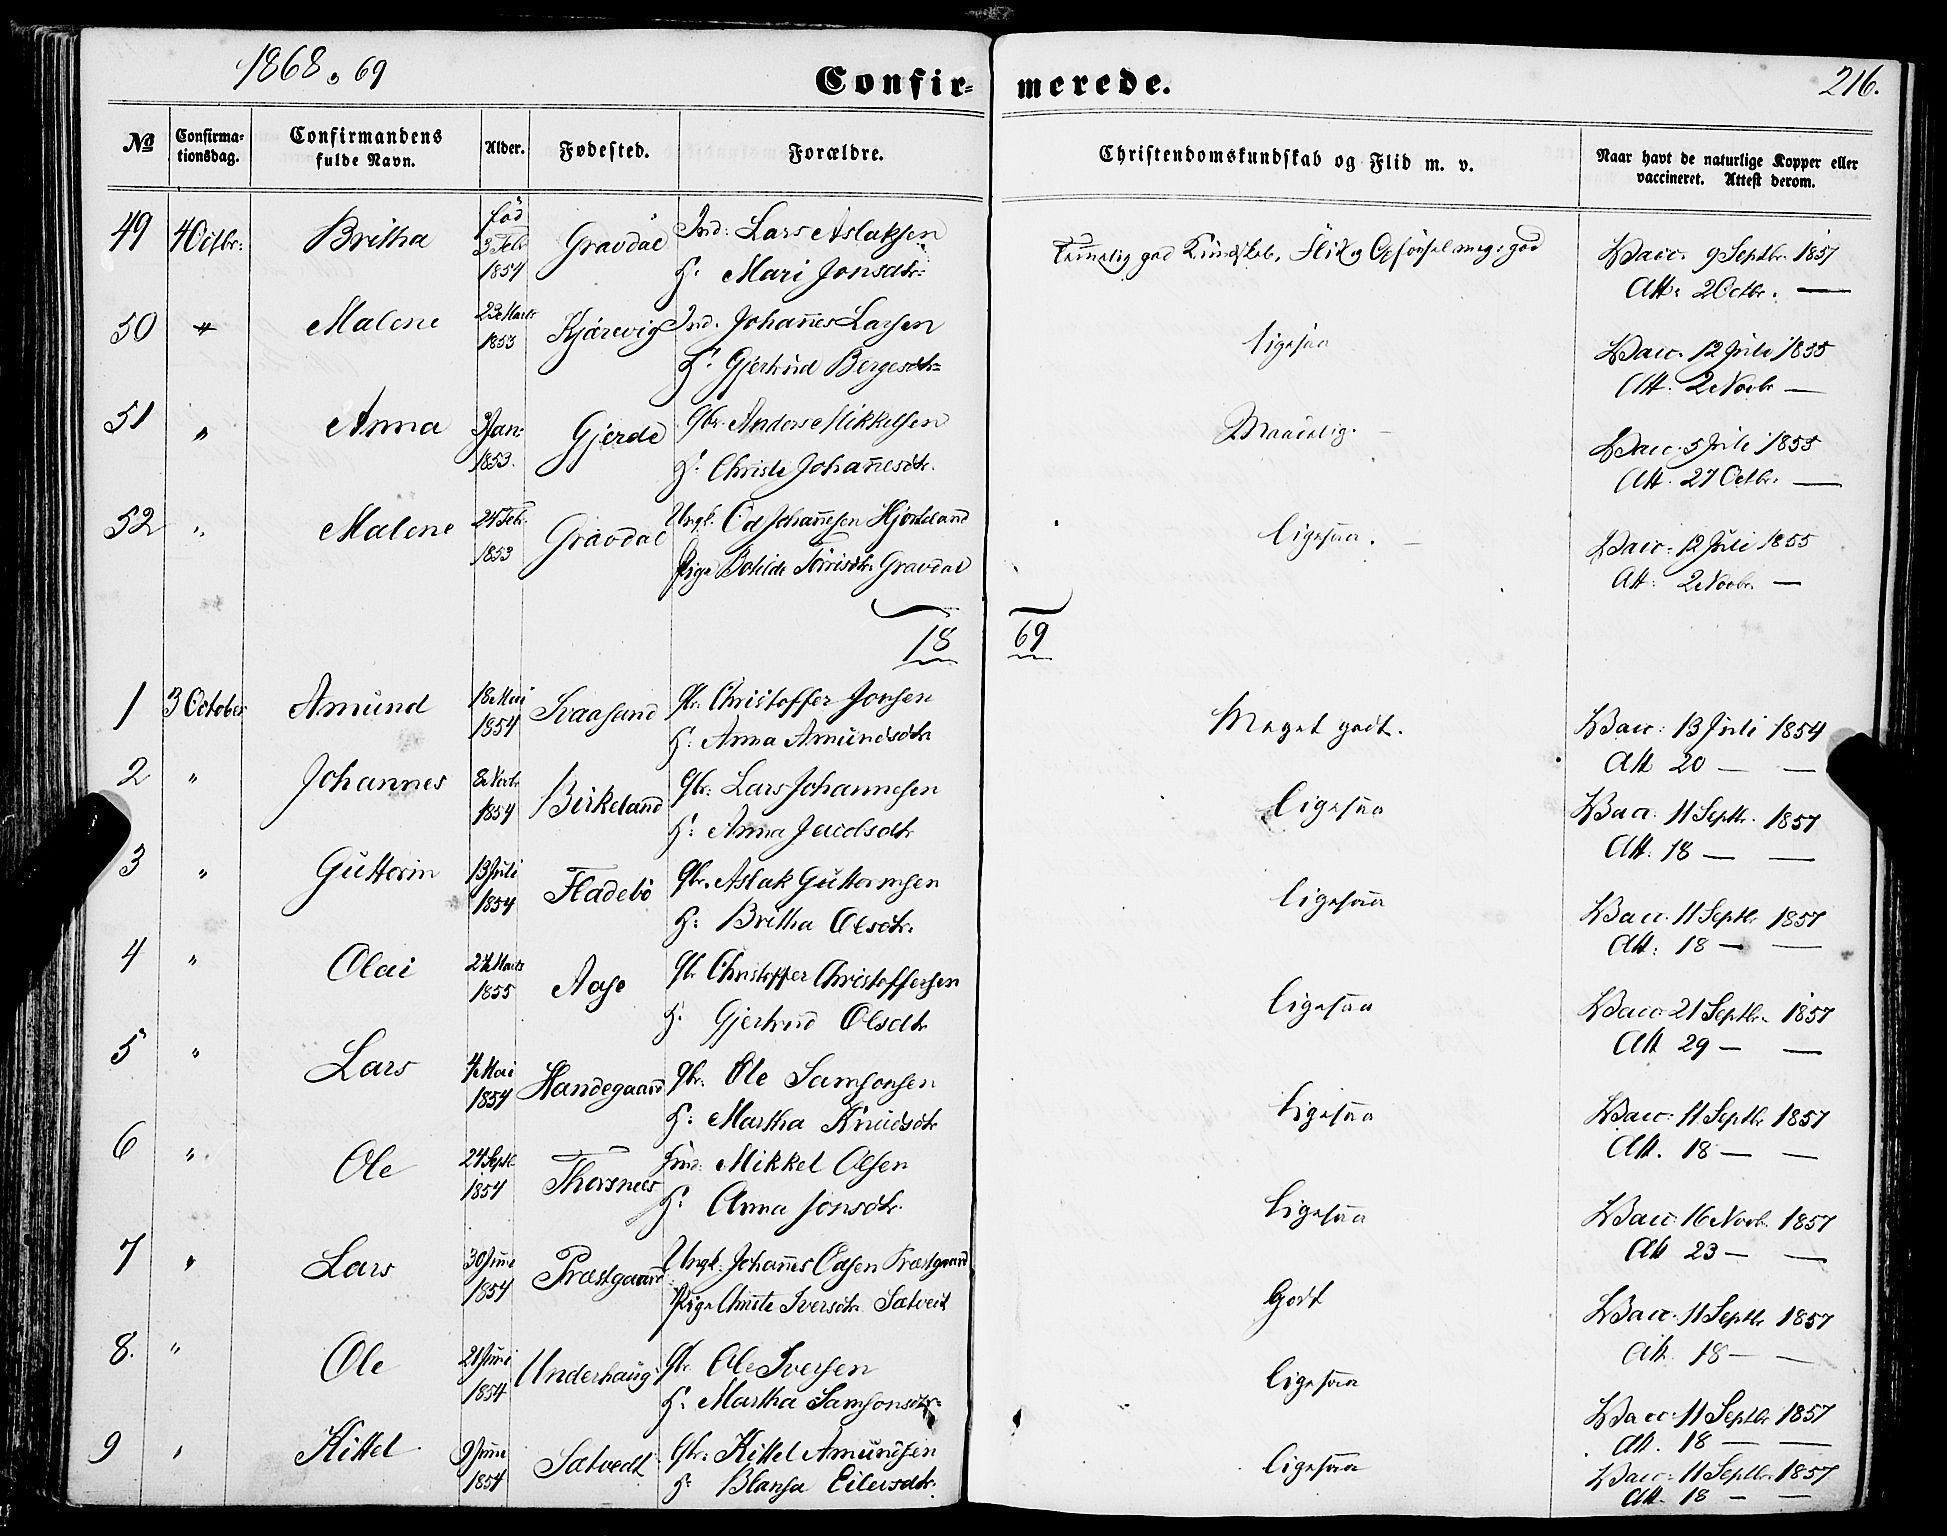 1868 & 69
Confir-
merede.
216.
No
Confirma-
tionsdag.
Confirmandens
fulde Navn.
Alder.
Fødested.
Forældre.
Christendomskundskab og Flid m. v.
Naar havt de naturlige Kopper eller
vaccineret. Attest derom.
49 4 Octbr: Britha født 3 Febr 1854 Gravdal Ind: Lars Aslaksen
H: Mari Jonsdtr:
Temmelig god Kundskab, Flid og Opførsel meget god
Vacc. 9 Septbr. 1857
Att: 2 Octbr. —
50 " Malene 23 Marts 1853 Kjærevig Ind. Johannes Larsen
H: Gjertrud Bergesdtr:
ligesaa
Vacc. 12 Juli 1855
Att. 2 Novbr —
51 " Anna 3 Jan: 1853. Gjerde Gbr. Anders Mikkelsen
H: Christe Johannesdtr.
Maadelig.
Vacc. 5 Juli 1855
Att. 27 Octbr. —
52 " Malene 24 Febr. 1853 Gravdal Ungk. Od Johannesen Hjorteland
Pige Botilde Gravdal
ligesaa.
Vacc. 12 Juli 1855
Att: 2 Novbr. —
18 69
1 3 October Amund 18 Mai 1854 Svaasand Gbr. Christoffer Jonsen
H: Anna Amundsdtr
Meget godt.
Vacc: 13 Juli 1854
Att 20 — —
2 " Johannes 8 Novbr 1854 Birkeland Gbr: Lars Johannesen
H: Anna
ligesaa
Vacc. 11 Septbr. 1857
Att. 18 — —
3 " Guttorm 13 Juli 1854 Fladebö Gbr. Aslak Guttormsen
H: Britha Olsdtr.
ligesaa
Vacc. 11 Septbr 1857
Att: 18 — —
4 " Olai 24 Marts 1855 Aase Gbr Christoffer Christoffersen
H: Gjertrud Olsdtr
ligesaa
Vacc. 21 Septbr. 1857
Att 29 — —
5 " Lars 4 Mai 1854 Handegaard Gbr. Ole Samsonsen
H: Martha Knudsdtr
ligesaa
Vacc. 11 Septbr 1857
Att. 18 — —
6 " Ole 24 Septbr 1854 Thorsnæs Ind: Mikkel Olsen
H: Anna Jonsdtr.
ligesaa
Vacc. 16 Novb. 1857
Att 23 — —
7 " Lars 30 Juni 1854 Præstgaard Ungk. Johannes Odsen Præstgaard
Pige Christe Iversdtr. Sætveit
Godt
Vacc. 11 Septbr 1857
Att. 18 — —
8. " Ole 21 Juni 1854 Underhaug Gbr. Ole Iversen
H. Martha Samsonsdtr.
ligesaa
Vacc. 11 Septbr 1857
Att. 18 — —
9 " Kittel 9 Juni 1854 Sætvedt Gbr: Kittel Amundsen
H: Eilersdtr.
ligesaa
Vacc. 11 Septbr. 1857
Att. 18 — —